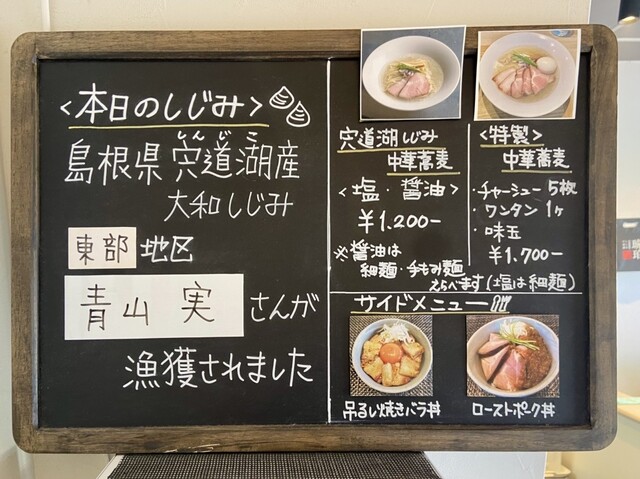 <本日のしじみ>
しんじこ
島根県 宍道湖産
大和しじみ
東部 地区
青山 実 さんが
漁獲されました
宍道湖しじみ
中華蕎麦
<塩・醤油>
¥1.200-
※醤油は
細麺・手もみ麺
えらべます(塩は細麺)
<特製>
中華蕎麦
・チャーシュー 5枚
・ワンタン 1ヶ
・味玉
¥1.700-
サイドメニュー
吊るし焼きバラ丼
ローストポーク丼